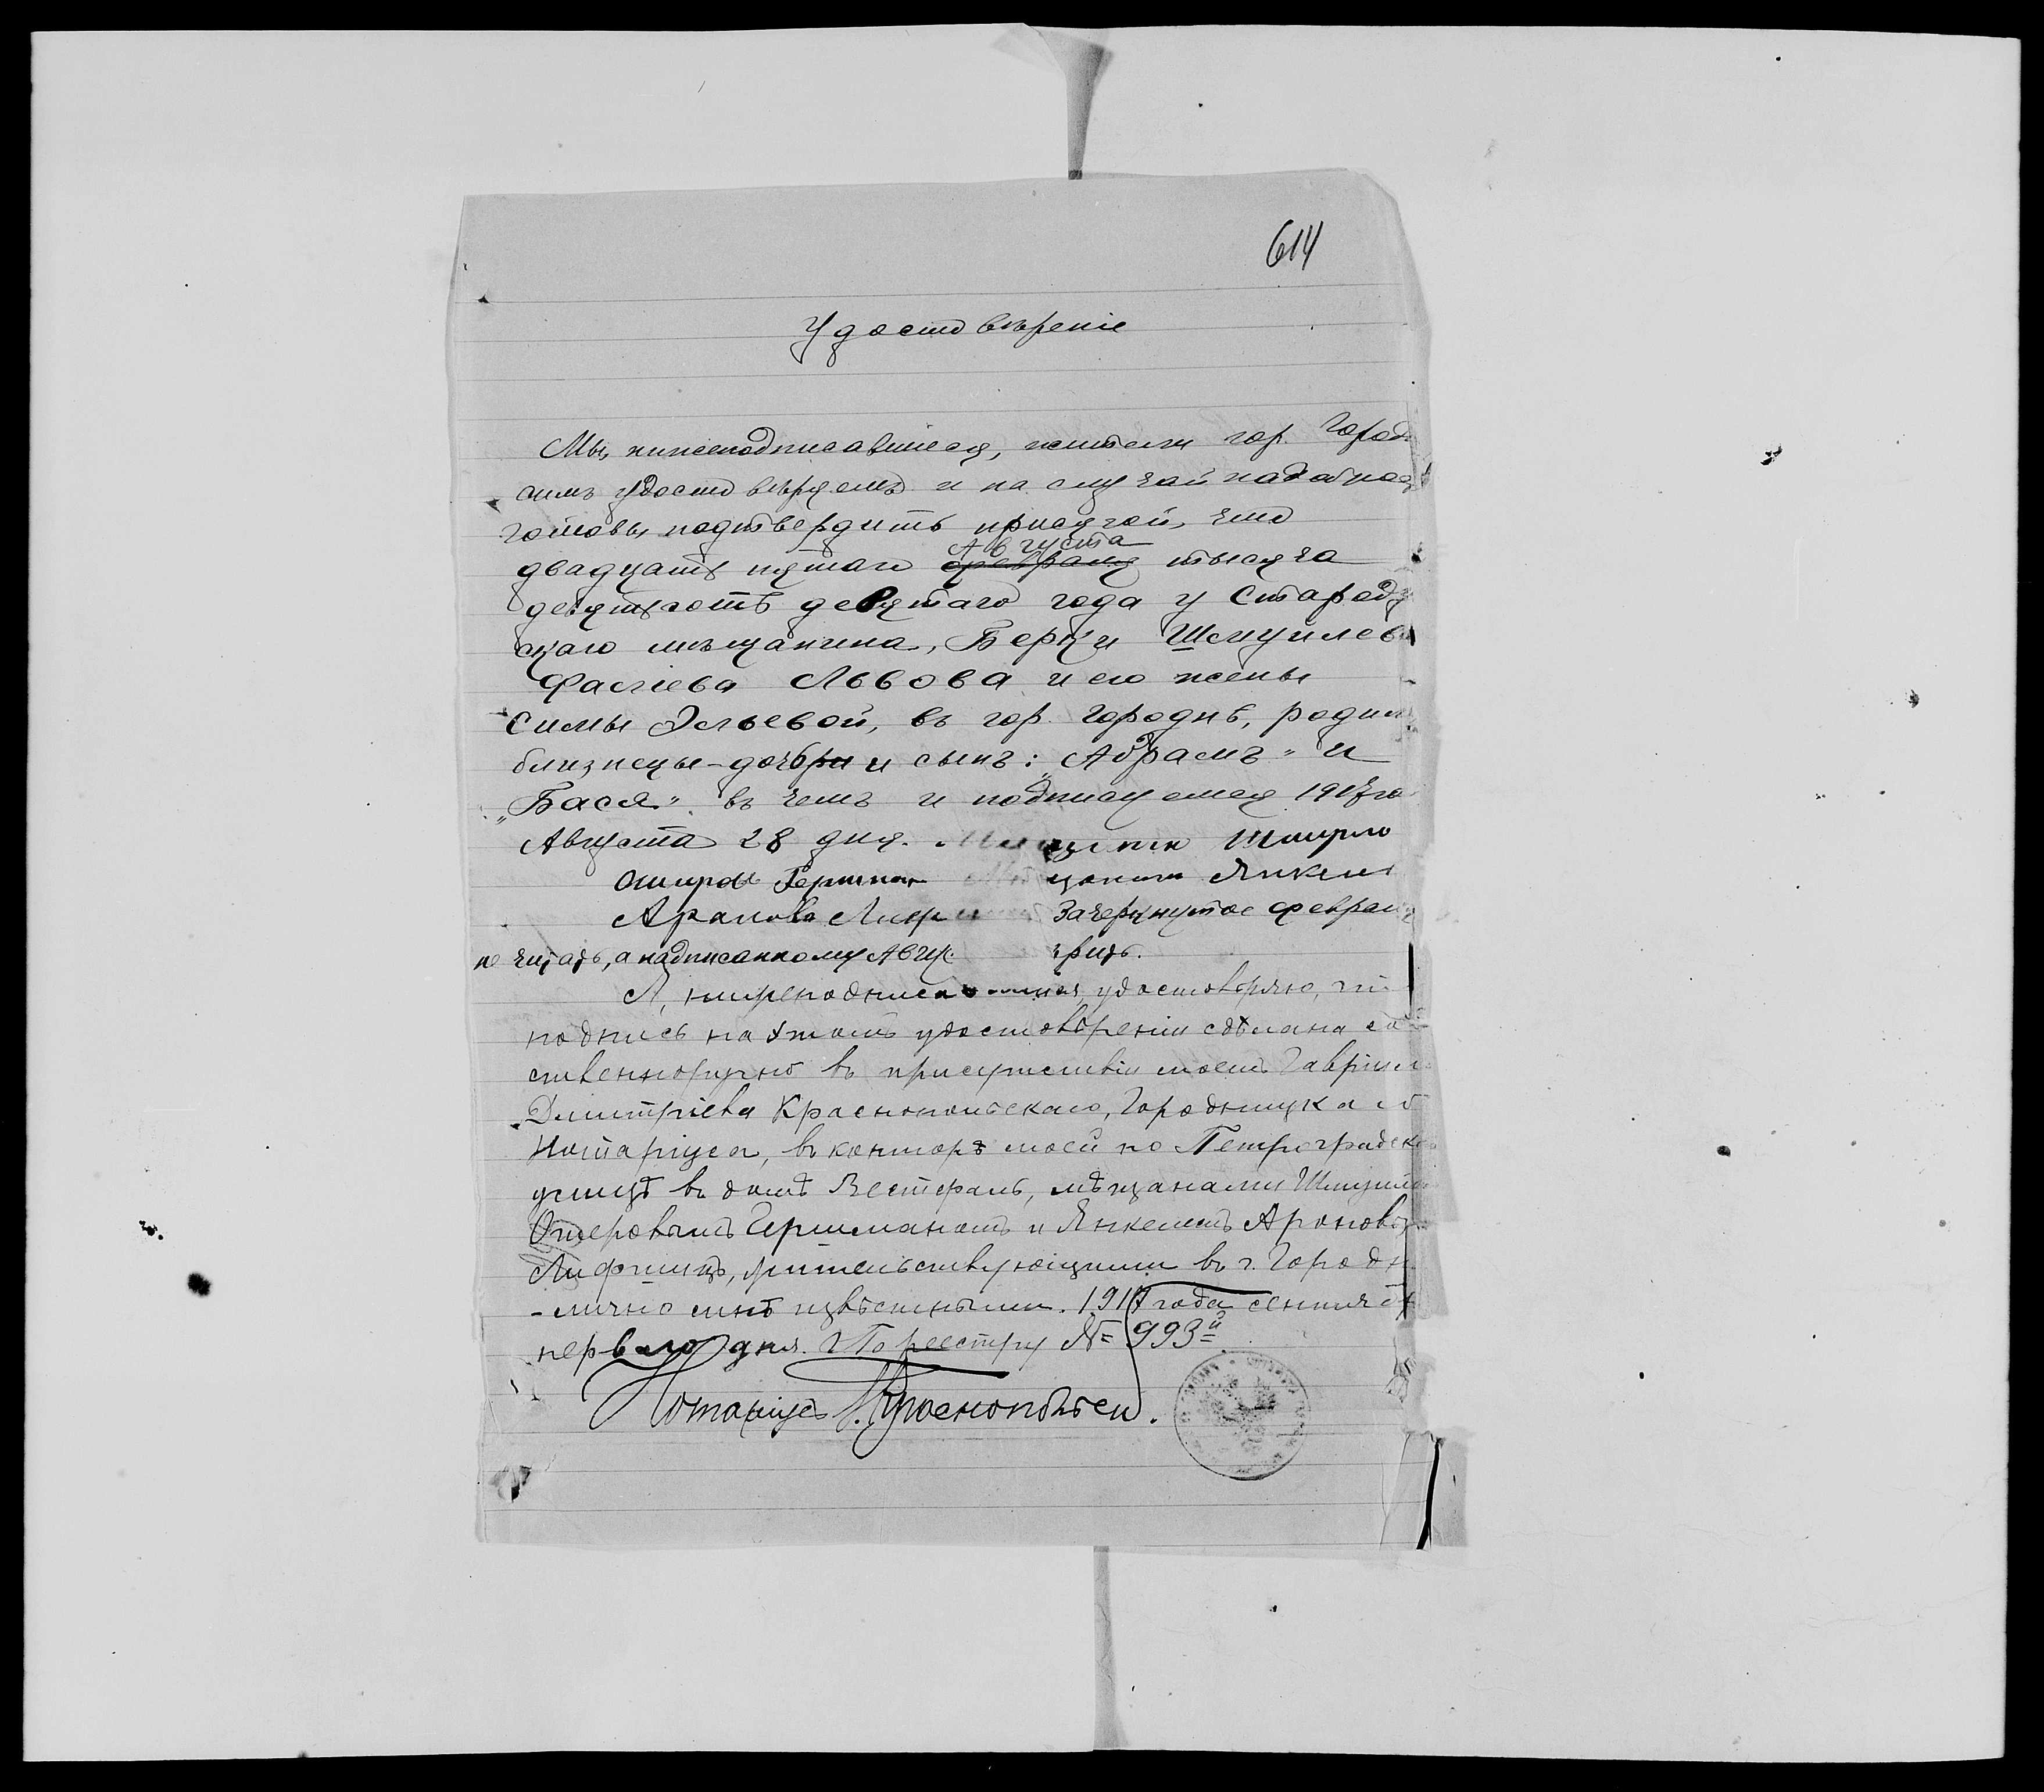 614
Удостовѣреніе
Мы, нижеподписавшіеся, жители гор. Город
симъ удостовѣряемъ и на случай надобнос
готовы подтвердить присягой, что
Августа
двадцать пятаго февраля тысяча
девятьсотъ девятаго года у Староду
скаго мѣщанина, Берки Шмуилев
Фалліева Львова и его жены
Симы Эльевой, въ гор. Городнѣ, родил
близнецы-дочь и сынъ: „Абрамъ" и
„Бася". въ чемъ и подписуемся 1917 го
Августа 28 дня. Мѣщанин Шмуило
Ошеров Гершман Мѣщанин Янкель
Аранов Лиф Зачеркнутое феврал
не читать, а надписанному Авгус вѣрить.
Я, нижеподписавшійся, удостовѣряю, что
подпись на этомъ удостовѣреніи сдѣлана соб
ственноручно въ присутствіи моемъ Гавріила
Димитріева Краснопольскаго, Городницкаго
Нотаріуса, въ конторѣ моей по Петроградской
улицѣ въ домѣ Вестерамъ, мѣщанами Шмуиломъ
Ошеровымъ Гершманомъ и Янкелемъ Ароновымъ
Лифшицъ, жительствующими въ г. Городн
-лично мнѣ извѣстными. 1917 года сентября
перваго дня. По реестру № 993й
Нотаріусъ Г. Краснопольск.